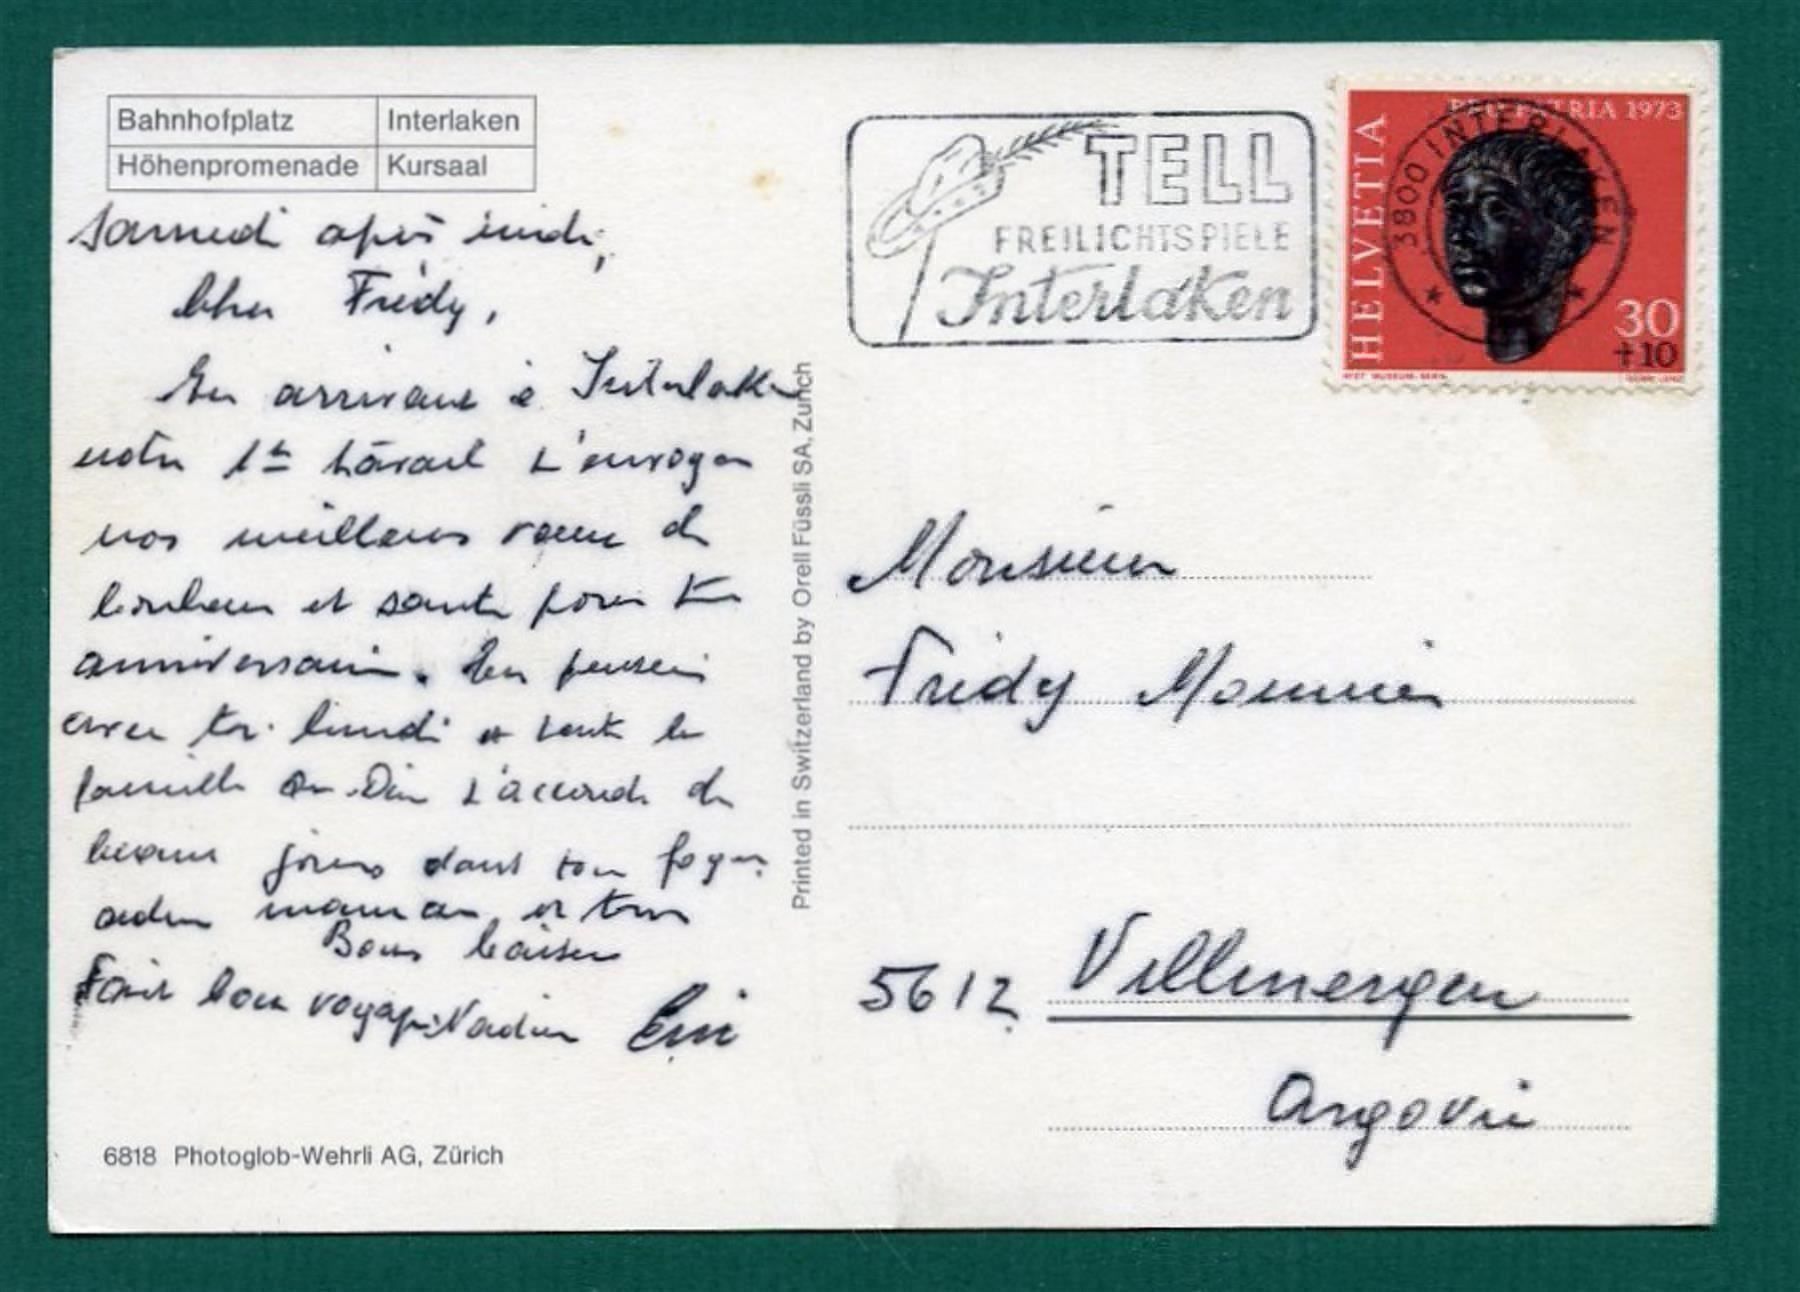 Bahnhofplatz Interlaken
Höhenpromenade Kursaal
Samedi après midi,
Cher Frédy,
En arrivant à Interlaken
notre 1er travail t'envoyer
nos meilleurs vœux de
bonheur et santé pour ton
anniversaire. En pensée
avec toi lundi et toute la
famille Dieu t'accorde de
beaux jours dans ton foyer
maman, et tous
Bons baisers
bon voyage Nadine
6818 Photoglob-Wehrli AG, Zürich
Printed in Switzerland by Orell Füssli SA, Zurich
TELL
FREILICHTSPIELE
Interlaken
PRO PATRIA 1973
HELVETIA
3800 INTERLAKEN
30
+10
HIST. MUSEUM. BERN
Monsieur
Fridy Monnier
5612 Villmergen
Argovie